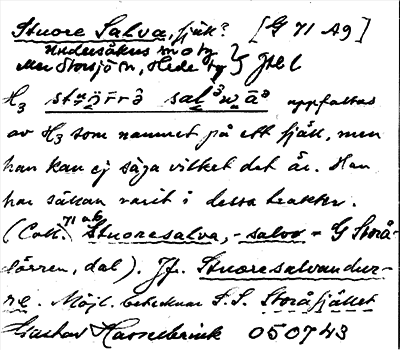 Stuore Salva, fjäll? [G 71 A9]
Undersåkers sn o ty
Mu Storsjö sn, Hede ty } Jtl l
H3 uppfattas
av H3 som namnet på ett fjäll, men
han kan ej säga vilket det är. Han
har sällan varit i dessa trakter.
(Coll. 71 ab Stuoresalva, -salvo = G Storå-
dörren, dal). Jfr. Stuoresalvandur-
re. Möjl. betecknar S.S. Storåfjället
Gustav Hasselbrink 050743